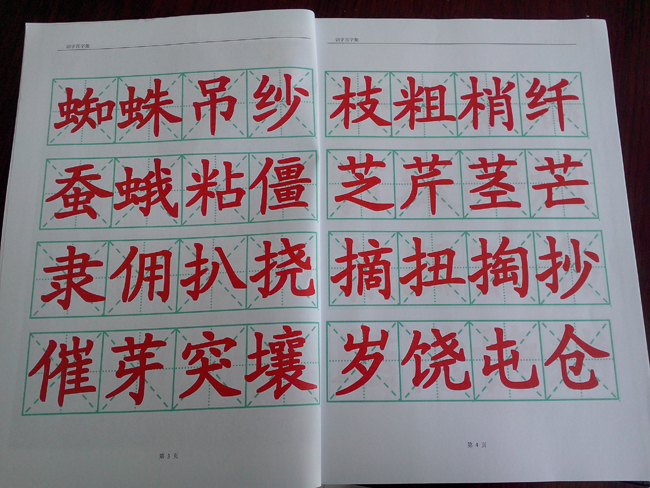 蜘蛛吊纱
蚕蛾粘僵
隶佣扒挠
催芽突壤
第 3 页
枝粗梢纤
芝芹茎芒
摘扭掏抄
岁饶屯仓
第 4 页